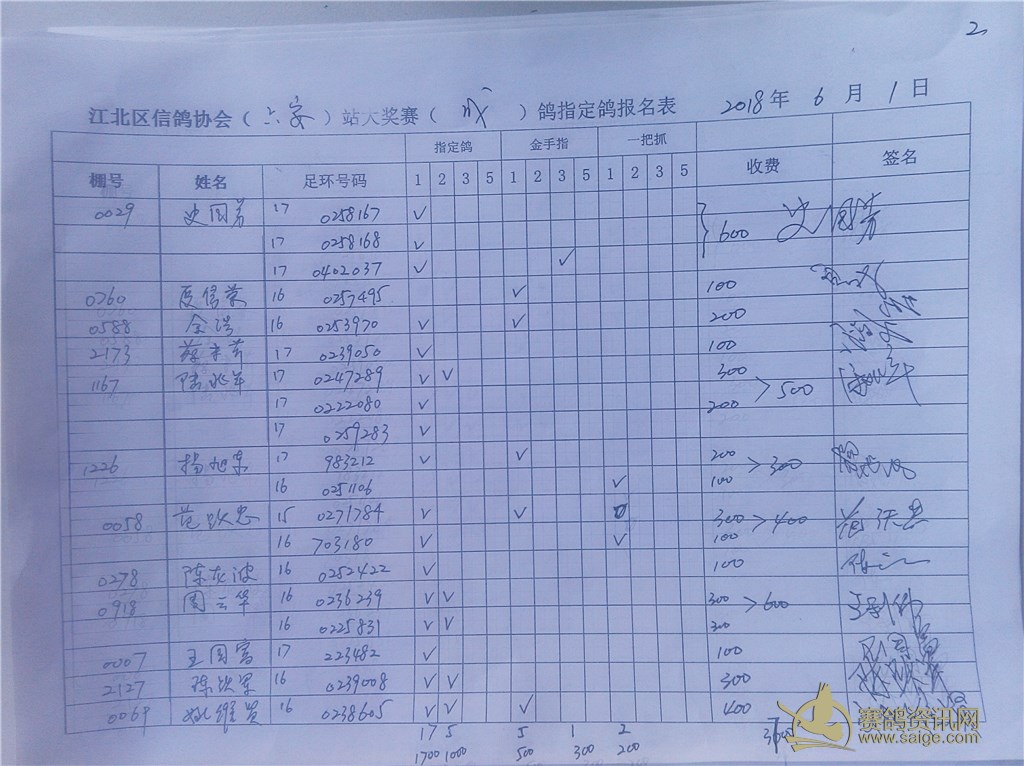 2
江北区信鸽协会（六安）站大奖赛（成）鸽指定鸽报名表 2018年 6月 1日
指定鸽 金手指 一把抓
棚号 姓名 足环号码 1 2 3 5 1 2 3 5 1 2 3 5 收费 签名
0029 史国芳 17 0258167 √ 600 史国芳
17 0258168 √
17 0402037 √ √
0260 夏信荣 16 0257495 √ 100
0588 金浩 16 0253970 √ √ 200
2173 17 0239050 √ 100
1167 陆兆年 17 0247289 √ √ 300 >500
17 0222080 √ 200
17 0259283 √
1226 杨旭东 17 983212 √ √ 200 >300
16 0251106 √ 100
0058 范跃忠 15 0271784 √ √ 300 >400
16 703180 √ √ 100
0278 陈友波 16 0252422 √ 100
0918 周云华 16 0236239 √ √ 300 >600
16 0225831 √ √ 300
0007 王国富 17 223482 √ 100
2127 16 0239008 √ √ 300
0069 姚维贤 16 0238605 √ √ √ 400
17 5 5 1 2
1700 1000 500 300 200
赛鸽资讯网
www.saige.com